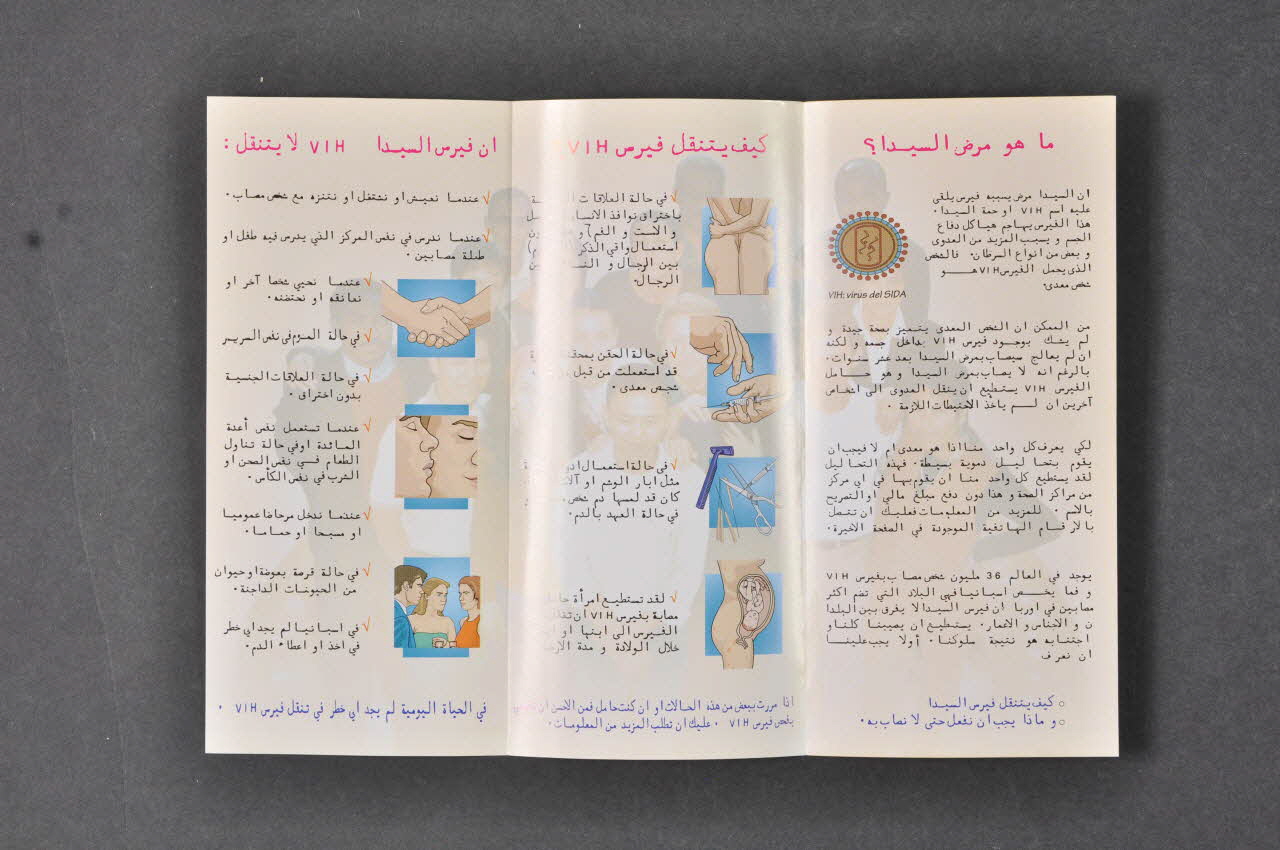 ما هو مرض السيدا؟
ان السيدا مرض يسببه فيرس يلقى
عليه اسم VIH او حمة السيدا.
هذا الفيرس يهاجم هياكل دفاع
الجسم و يسبب المزيد من العدوى
و بعض من انواع السرطان. فالشخص
الذى يحمل الفيرس VIH هــو
شخص معدى.
VIH: virus del SIDA
من الممكن ان الشخص المعدى يتميز بصحة جيدة و
لم يشك بوجود فيرس VIH بداخل جسمه و لكنه
ان لم يعالج سيصاب بمرض السيدا بعد عشر سنوات.
بالرغم انه لا يصاب بمرض السيدا و هو حامل
الفيرس VIH يستطيع ان ينقل العدوى الى اشخاص
آخرين ان لــم ياخذ الاحتيطات اللازمة .
لكي يعرف كل واحد منا اذا هو معدى ام لا فيجب ان
يقوم بتحاليــل دموية بسيطة. فهذه التحاليل
لقد يستطيع كل واحد منا ان يقوم بها في اي مركز
من مراكز الصحة و هذا دون دفع مبلغ مالي او التصريح
بالاسم . للمزيد من المعلومات فعليك ان تتصل
بالارقام الهاتفية الموجودة في الصفحة الاخيرة.
يوجد في العالم 36 مليون شخص مصاب بفيرس VIH
و فما يخــص اسبانيا فهي البلاد التي تضم اكثر
مصابين في اوربا ان فيرس السيدا لا يفرق بين البلدا
ن و الاجناس و الاعمار. يستطيع ان يصيبنا كلنا و
اجتنابه هو نتيجة سلوكنا. أولا يجب علينــا
ان نعرف
○ كيف يتنقل فيرس السيدا
○ و ماذا يجب ان نفعل حتى لا نصاب به.
كيف يتنقل فيرس VIH
√ في حالة العلاقات
باختراق نوافذ الانسا
و الاست و الفم) و
استعمال واقي الذكر
بين الرجال و
الرجال.
√ في حالة الحقن بمحقنة
قد استعملت من قبل
شخص معدى .
√ في حالة استعمال
مثل ابار الوشم او
كان قد لمسها دم شخص
في حالة العهد بالدم.
√ لقد تستطيع امرأة
مصابة بفيرس VIH ان
الفيرس الى ابنها او
خلال الولادة و مدة
اذا مررت ببعض من هذه الحالات او ان كنت حامل فمن الاحسن ان
بفحص فيرس VIH . عليك ان تطلب المزيد من المعلومات.
ان فيرس السيدا VIH لا يتنقل :
√ عندما نعيش او نشتغل او نتنزه مع شخص مصاب.
√ عندما ندرس في نفس المركز الذي يدرس فيه طفل او
طفلة مصابين .
√ عندما نحيي شخصا آخر او
نعانقه او نحتضنه.
√ في حالة النوم في نفس السرير
√ في حالة العلاقات الجنسية
بدون اختراق .
√ عندما تستعمل نفس أعدة
المائدة او في حالة تناول
الطعام فــي نفس الصحن او
الشرب في نفس الكأس.
√ عندما ندخل مرحاضا عموميا
او مسبحا او حماما.
√ في حالة قرصة بعوضة او حيوان
من الحيونات الداجنة.
√ في اسبانيا لم يجد اي خطر
في اخذ او اعطاء الدم.
في الحياة اليومية لم يجد اي خطر في تنقل فيرس VIH .